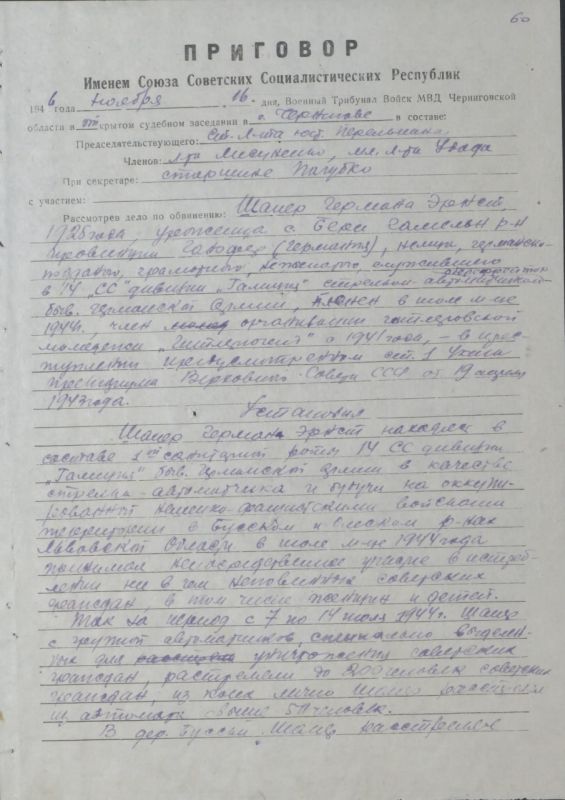 60
ПРИГОВОР
Именем Союза Советских Социалистических Республик
1946 года ноября 16. дня, Военный Трибунал Войск МВД Черниговской
области в открытом судебном заседании в г. Чернигове в составе:
Председательствующего: ст. л-та юст.
Членов: л-та Лисиненко, мл. л-та
При секретаре: старшине
с участием:
Рассмотрев дело по обвинению:
1925 года уроженца с.
провинции (Германия), немца, германско-
подданого, грамотного, холостого, служившего
в 14 "СС" дивизии "Галиция" стрелком-автоматчиком
быв. германской армии, пленен в июле м-це
1944г., член организации гитлеровской
молодежи с 1941 года, – в прес-
туплении предусмотренном ст. 1 Указа
Президиума Верховного Совета СССР от 19 апреля
1943 года.
Установил
Герман Эрнст находясь в
составе 1ой санитарной роты 14 СС дивизии
"Галиция" быв. германской армии в качестве
стрелка-автоматчика и будучи на оккупи-
рованной немецко-фашистскими войсками
территории в Бусском и Олеском р-нах
Львовской области в июле м-це 1944 года
принимал непосредственное участие в истреб-
лении ни в чем неповинных советских
граждан, в том числе женщин и детей.
Так за период с 7 по 14 июля 1944г.
с группой автоматчиков, специально выделен-
ных для уничтожения советских
граждан, расстреляли до 200 человек советских
граждан, из коих лично расстрелял
из автомата свыше 50 человек.
В дер. расстрелял